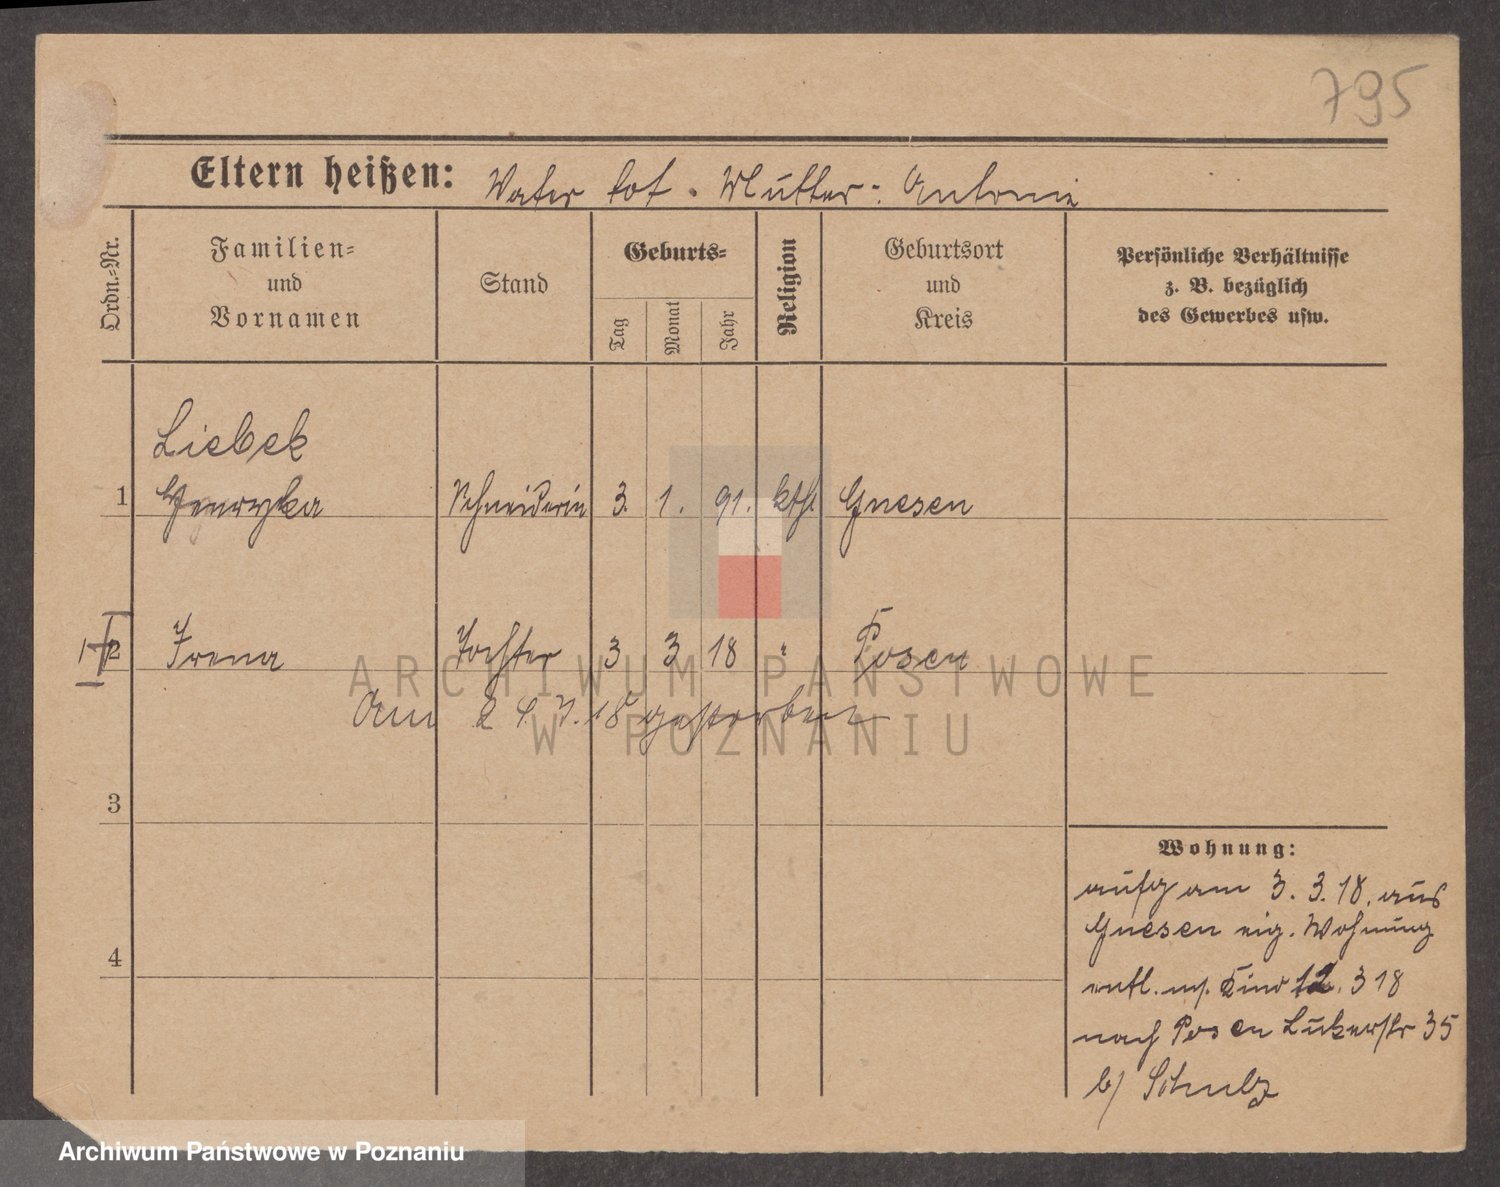 795
Eltern heißen: Vater tot. Mutter: Antonie
Ordn.-Nr.
Familien- und Vornamen
Stand
Geburts-
Tag
Monat
Jahr
Religion
Geburtsort und Kreis
Persönliche Verhältnisse z. B. bezüglich des Gewerbes usw.
Liebek
1 Henryka Schneiderin 3. 1. 91. kth. Gnesen
2 Irena Tochter 3 3 18 " Posen
Am 24.7.18 gestorben
3
4
Wohnung:
aufg am 3. 3. 18. aus
Gnesen eig. Wohnung
entl. m. Kind 12. 3 18
nach Posen Lukerstr 35
b/ Schulz
ARCHIWUM PAŃSTWOWE
W POZNANIU
Archiwum Państwowe w Poznaniu